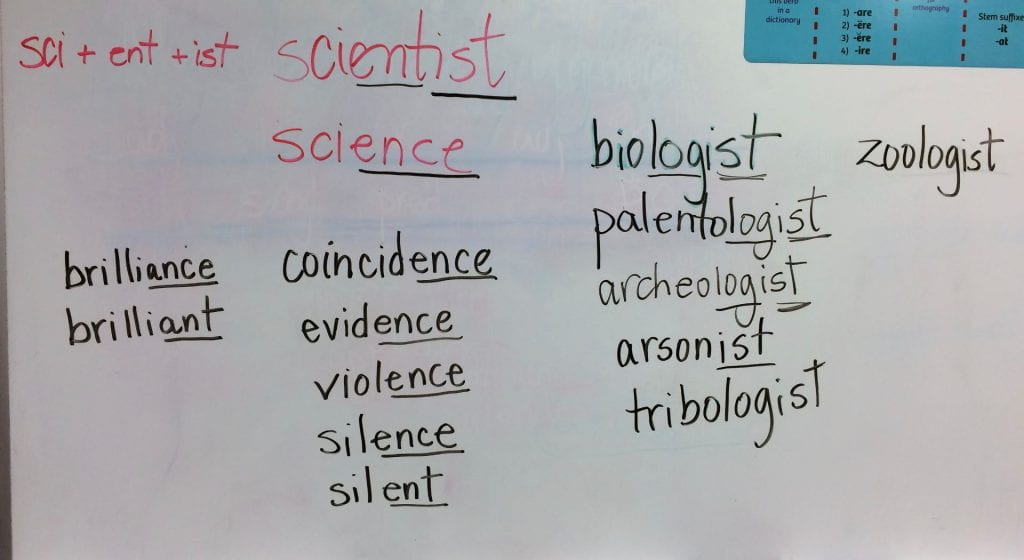 this verb
in a
dictionary
1) -are
2) -ēre
3) -ĕre
4) -ire
orthography
Stem suffixe
-it
-at
sci + ent + ist
scientist
science
brilliance
brilliant
coincidence
evidence
violence
silence
silent
biologist
palentologist
archeologist
arsonist
tribologist
zoologist